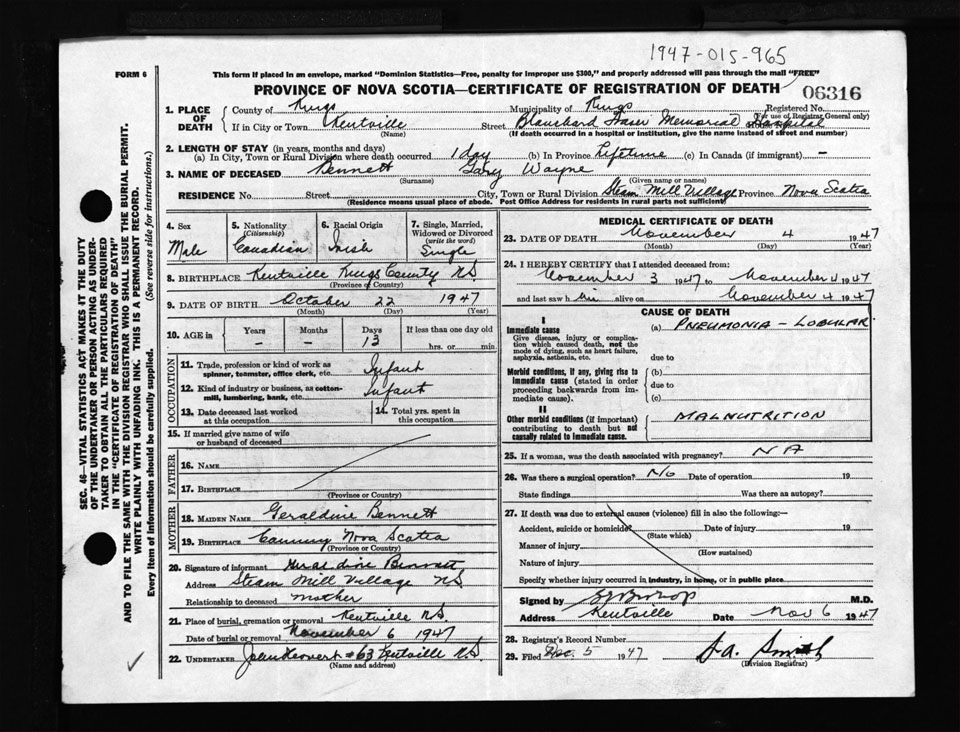 1947-015-965
FORM 6
This form if placed in an envelope, marked "Dominion Statistics—Free, penalty for improper use $300," and properly addressed will pass through the mail "FREE"
PROVINCE OF NOVA SCOTIA—CERTIFICATE OF REGISTRATION OF DEATH
06316
1. PLACE OF DEATH
County of Kings Municipality of Kings Registered No.
(For use of Registrar General only)
If in City or Town Kentville Street Blanchard Fraser Memorial Hospital
(Name) (If death occurred in a hospital or institution, give the name instead of street and number)
2. LENGTH OF STAY (in years, months and days)
(a) In City, Town or Rural Division where death occurred 1 day (b) In Province Lifetime (c) In Canada (if immigrant) —
3. NAME OF DECEASED Bennett Gary Wayne
(Surname) (Given name or names)
RESIDENCE No. Street City, Town or Rural Division Steam Mill Village Province Nova Scotia
(Residence means usual place of abode. Post Office Address for residents in rural parts not sufficient)
4. Sex 5. Nationality (Citizenship) 6. Racial Origin 7. Single, Married, Widowed or Divorced (write the word)
Male Canadian Irish Single
8. BIRTHPLACE Kentville Kings County N.S.
(Province or Country)
9. DATE OF BIRTH October 22 1947
(Month) (Day) (Year)
10. AGE in Years Months Days If less than one day old
- - 13 hrs. or min.
OCCUPATION
11. Trade, profession or kind of work as spinner, teamster, office clerk, etc. Infant
12. Kind of industry or business, as cotton-mill, lumbering, bank, etc. Infant
13. Date deceased last worked at this occupation 14. Total yrs. spent in this occupation
15. If married give name of wife or husband of deceased
FATHER
16. NAME
17. BIRTHPLACE
(Province or Country)
MOTHER
18. MAIDEN NAME Geraldine Bennett
19. BIRTHPLACE Nova Scotia
(Province or Country)
20. Signature of informant Geraldine Bennett
Address Steam Mill Village N.S.
Relationship to deceased mother
21. Place of burial, cremation or removal Kentville N.S.
Date of burial or removal November 6 1947
22. UNDERTAKER #63 Kentville N.S.
(Name and address)
MEDICAL CERTIFICATE OF DEATH
23. DATE OF DEATH November 4 1947
(Month) (Day) (Year)
24. I HEREBY CERTIFY that I attended deceased from:
November 3 1947 to November 4 1947
and last saw him alive on November 4 1947
CAUSE OF DEATH
I
Immediate cause
Give disease, injury or complication which caused death, not the mode of dying, such as heart failure, asphyxia, asthenia, etc.
(a) PNEUMONIA - LOBULAR
due to
Morbid conditions, if any, giving rise to immediate cause (stated in order proceeding backwards from immediate cause).
(b)
due to
(c)
II
Other morbid conditions (if important) contributing to death but not causally related to immediate cause.
MALNUTRITION
25. If a woman, was the death associated with pregnancy? NA
26. Was there a surgical operation? No Date of operation 19
State findings Was there an autopsy?
27. If death was due to external causes (violence) fill in also the following:—
Accident, suicide or homicide Date of injury 19
(State which)
Manner of injury
(How sustained)
Nature of injury
Specify whether injury occurred in industry, in home, or in public place
Signed by M.D.
Address Kentville Date Nov 6 1947
28. Registrar's Record Number
29. Filed Dec. 5 1947 Smith
(Division Registrar)
SEC. 46—VITAL STATISTICS ACT MAKES IT THE DUTY
OF THE UNDERTAKER OR PERSON ACTING AS UNDER-
TAKER TO OBTAIN ALL THE PARTICULARS REQUIRED
IN THE "CERTIFICATE OF REGISTRATION OF DEATH"
AND TO FILE THE SAME WITH THE DIVISION REGISTRAR WHO SHALL ISSUE THE BURIAL PERMIT.
WRITE PLAINLY WITH UNFADING INK. THIS IS A PERMANENT RECORD.
Every item of information should be carefully supplied. (See reverse side for instructions.)